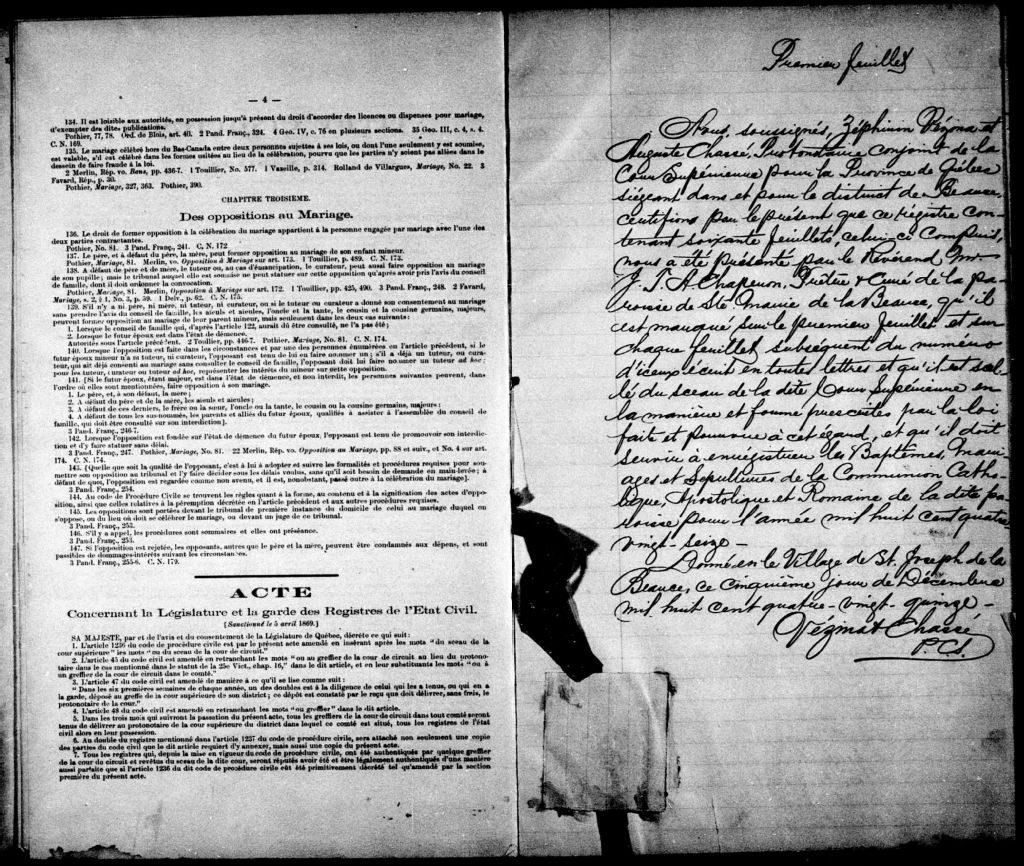 — 4 —
134. Il est loisible aux autorités, en possession jusqu'à présent du droit d'accorder des licences ou dispenses pour mariage,
d'exempter des dites publications.
Pothier, 77, 78. Ord. de Blois, art. 40. 2 Pand. Franç., 324. 4 Geo. IV, c. 76 en plusieurs sections. 35 Geo. III, c. 4, s. 4.
C. N. 169.
135. Le mariage célébré hors du Bas-Canada entre deux personnes sujettes à ses lois, ou dont l'une seulement y est soumise,
est valable, s'il est célébré dans les formes usitées au lieu de la célébration, pourvu que les parties n'y soient pas allées dans le
dessein de faire fraude à la loi.
2 Merlin, Rép. vo. Bans, pp. 436-7. 1 Touillier, No. 577. 1 Vazeille, p. 314. Rolland de Villargues, Mariage, No. 22. 3
Favard, Rép., p. 30.
Pothier, Mariage, 327, 363. Pothier, 390.
CHAPITRE TROISIEME.
Des oppositions au Mariage.
136. Le droit de former opposition à la célébration du mariage appartient à la personne engagée par mariage avec l'une des
deux parties contractantes.
Pothier, No. 81. 3 Pand. Franç., 241. C. N. 172.
137. Le père, et à défaut du père, la mère, peut former opposition au mariage de son enfant mineur.
Pothier, Mariage, 81. Merlin, vo. Opposition à Mariage sur art. 173. 1 Touillier, p. 489. C. N. 173.
138. A défaut de père et de mère, le tuteur ou, au cas d'émancipation, le curateur, peut aussi faire opposition au mariage
de son pupille; mais le tribunal auquel elle est soumise ne peut statuer sur cette opposition qu'après avoir pris l'avis du conseil
de famille, dont il doit ordonner la convocation.
Pothier, Mariage, 81. Merlin, Opposition à Mariage sur art. 172. 1 Touillier, pp. 425, 490. 3 Pand. Franç., 248. 2 Favard,
Mariage, s. 2, § 1, No. 3, p. 59. 1 Delv., p. 62. C. N. 175.
139. S'il n'y a ni père, ni mère, ni tuteur, ni curateur, ou si le tuteur ou curateur a donné son consentement au mariage
sans prendre l'avis du conseil de famille, les aïeuls et aïeules, l'oncle et la tante, le cousin et la cousine germains, majeurs,
peuvent former opposition au mariage de leur parent mineur, mais seulement dans les deux cas suivants:
1. Lorsque le conseil de famille qui, d'après l'article 122, aurait dû être consulté, ne l'a pas été;
2. Lorsque le futur époux est dans l'état de démence.
Autorités sous l'article précédent. 2 Touillier, pp. 446-7. Pothier, Mariage, No. 81. C. N. 174.
140. Lorsque l'opposition est faite dans les circonstances et par une des personnes énumérées en l'article précédent, si le
futur époux mineur n'a ni tuteur, ni curateur, l'opposant est tenu de lui en faire nommer un; s'il a déjà un tuteur, ou cura-
teur, qui ait déjà consenti au mariage sans consulter le conseil de famille, l'opposant doit lui faire nommer un tuteur ad hoc;
pour les tuteur, curateur ou tuteur ad hoc, représenter les intérêts du mineur sur cette opposition.
141. [Si le futur époux, étant majeur, est dans l'état de démence, et non interdit, les personnes suivantes peuvent, dans
l'ordre où elles sont mentionnées, faire opposition à son mariage.
1. Le père, et, à son défaut, la mère;
2. A défaut du père et de la mère, les aïeuls et aïeules;
3. A défaut de ces derniers, le frère ou la sœur, l'oncle ou la tante, le cousin ou la cousine germains, majeurs;
4. A défaut de tous les sus-nommés, les parents et alliés du futur époux, qualifiés à assister à l'assemblée du conseil de
famille, qui doit être consulté sur son interdiction].
3 Pand. Franç., 246-7.
142. Lorsque l'opposition est fondée sur l'état de démence du futur époux, l'opposant est tenu de promouvoir son interdic-
tion et d'y faire statuer sans délai.
3 Pand. Franç., 247. Pothier, Mariage, No. 81. 22 Merlin, Rép. vo. Opposition au Mariage, pp. 88 et suiv., et No. 4 sur art.
174. C. N. 174.
143. [Quelle que soit la qualité de l'opposant, c'est à lui à adopter et suivre les formalités et procédures requises pour sou-
mettre son opposition au tribunal et l'y faire décider sous les délais voulus, sans qu'il soit besoin de demande en main-levée; à
défaut de quoi, l'opposition est regardée comme non avenue, et il est, nonobstant, passé outre à la célébration du mariage].
3 Pand. Franç., 254.
144. Au code de Procédure Civile se trouvent les règles quant à la forme, au contenu et à la signification des actes d'oppo-
sition, ainsi que celles relatives à la péremption décrétée en l'article précédent et aux autres procédures requises.
145. Les oppositions sont portées devant le tribunal de première instance du domicile de celui au mariage duquel on
s'oppose, ou du lieu où doit se célébrer le mariage, ou devant un juge de ce tribunal.
3 Pand. Franç., 253.
146. S'il y a appel, les procédures sont sommaires et elles ont préséance.
3 Pand. Franç., 253.
147. Si l'opposition est rejetée, les opposants, autres que le père et la mère, peuvent être condamnés aux dépens, et sont
passibles de dommages-intérêts suivant les circonstances.
3 Pand. Franç., 255-6. C. N. 179.
ACTE
Concernant la Législature et la garde des Registres de l'Etat Civil.
[Sanctionné le 5 avril 1869.]
SA MAJESTE, par et de l'avis et du consentement de la Législature de Québec, décrète ce qui suit:
1. L'article 1236 du code de procédure civile est par le présent acte amendé en insérant après les mots "du sceau de la
cour supérieure" les mots "ou du sceau de la cour de circuit."
2. L'article 45 du code civil est amendé en retranchant les mots "ou au greffier de la cour de circuit au lieu du protono-
taire dans le cas mentionné dans le statut de la 25e Vict., chap. 16," dans le dit article, et en leur substituants les mots "ou à
un greffier de la cour de circuit dans le comté."
3. L'article 47 du code civil est amendé de manière à ce qu'il se lise comme suit:
"Dans les six premières semaines de chaque année, un des doubles est à la diligence de celui qui les a tenus, ou qui en a
la garde, déposé au greffe de la cour supérieure de son district; ce dépôt est constaté par le reçu que doit délivrer, sans frais, le
protonotaire de la cour."
4. L'article 48 du code civil est amendé en retranchant les mots "ou greffier" dans le dit article.
5. Dans les trois mois qui suivront la passation du présent acte, tous les greffiers de la cour de circuit dans tout comté seront
tenus de délivrer au protonotaire de la cour supérieure du district dans lequel ce comté est situé, tous les registres de l'état
civil alors en leur possession.
6. Au double du registre mentionné dans l'article 1237 du code de procédure civile, sera attaché non seulement une copie
des parties du code civil que le dit article requiert d'y annexer, mais aussi une copie du présent acte.
7. Tous les registres qui, depuis la mise en vigueur du code de procédure civile, ont été authentiqués par quelque greffier
de la cour de circuit et revêtus du sceau de la dite cour, seront réputés avoir été et être légalement authentiqués d'une manière
aussi parfaite que si l'article 1236 du dit code de procédure civile eût été primitivement décrété tel qu'amendé par la section
première du présent acte.
Premier feuillet
Nous, soussignés, Zéphirin Vézina et
Auguste Chassé, Protonotaire conjoint de la
Cour Supérieure pour la Province de Québec
siégeant dans et pour le district de Beauce,
certifions par le présent que ce régistre con-
tenant soixante feuillets, celui-ci Compris,
nous a été présenté par le Révérend Mr
J. T. A. Chaperon, Prêtre & Curé de la pa-
roisse de Ste Marie de la Beauce, qu'il
est marqué sur le premier feuillet et sur
chaque feuillet subséquent du numéro
d'iceux écrit en toutes lettres et qu'il est scel-
lé du sceau de la dite Cour Supérieure en
la manière et forme prescrites par la loi
faite et pourvue à cet égard, et qu'il doit
servir à enregistrer les Baptêmes, Mari-
ages et Sépultures de la Communion Catho-
lique, Apostolique et Romaine de la dite pa-
roisse pour l'année mil huit cent quatre
vingt-seize —
Donné en le Village de St. Joseph de la
Beauce, ce cinquième jour de Décembre
mil huit cent quatre-vingt-quinze —
Vézina & Chassé
P. C. S.